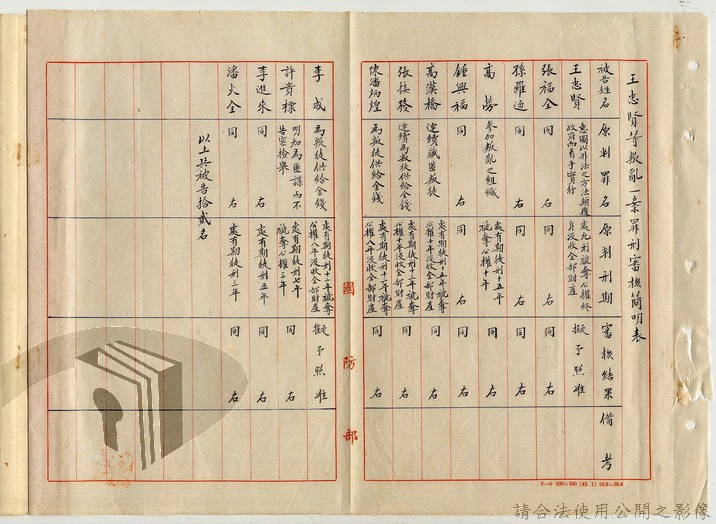 王忠賢等叛亂一案罪刑審核簡明表
被告姓名 原判罪名 原判刑期 審核結果 備考
王忠賢 意圖以非法之方法顛覆政府而著手實行 處死刑褫奪公權終身沒收全部財產 擬予照准
張福全 同右 同右 同右
孫羅通 同右 同右 同右
高勞 參加叛亂之組織 處有期徒刑十五年褫奪公權十年 同右
鍾興福 同右 同右 同右
高漢橋 連續藏匪叛徒 處有期徒刑十五年褫奪公權十年沒收全部財產 同右
張接發 連續為叛徒供給金錢 處有期徒刑十二年褫奪公權十年沒收全部財產 同右
陳潘炳煌 為叛徒供給金錢 處有期徒刑十二年褫奪公權八年沒收全部財產 同右
國防部
李成 為叛徒供給金錢 處有期徒刑十二年褫奪公權八年沒收全部財產 擬予照准
許貴標 明知為匪諜而不告密檢舉 處有期徒刑七年褫奪公權三年 同右
李進來 同右 處有期徒刑五年 同右
潘火全 同右 處有期徒刑三年 同右
以上共被告拾貳名
請合法使用公開之影像